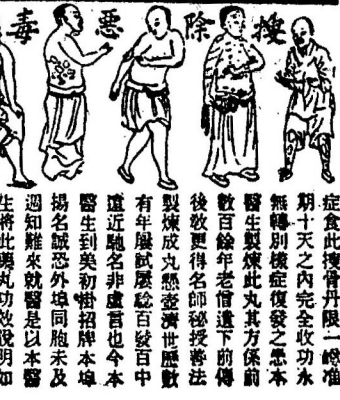 搜除惡毒
症食此搜骨丹限一禮准
期十天之內完全收功永
無轉別樣症復發之患本
醫生製煉此丸其方係前
數百餘年老僧遺下前傳
後教更得名師秘授善法
製煉成丸懸壺濟世歷數
有年屢試屢騐百發百中
遠近馳名非虛言也今本
醫生到美初掛招牌本埠
揚名誠恐外埠同胞未及
週知難來就醫是以本醫
生將此藥丸功效說明如